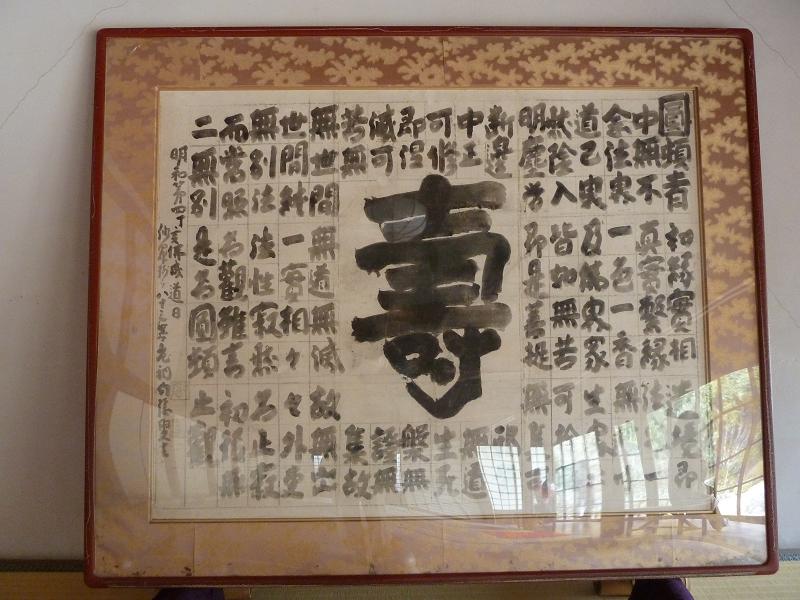 圓頓者初縁實相造境即
中無不真實繋縁法界一
念法界一色一香無非中
道己界及佛界衆生界亦
然陰入皆如無苦可捨無
明塵労即是菩提無集可
斷邊邪
中正無道
可修生死
即涅槃無
滅可證無
苦無集故
壽
無世間無道無滅故無出
世間純一實相々々外更
無別法法性寂然名止寂
而常照名觀雖言初後無
二無別是名圓頓止觀
明和第四丁亥佛成道日